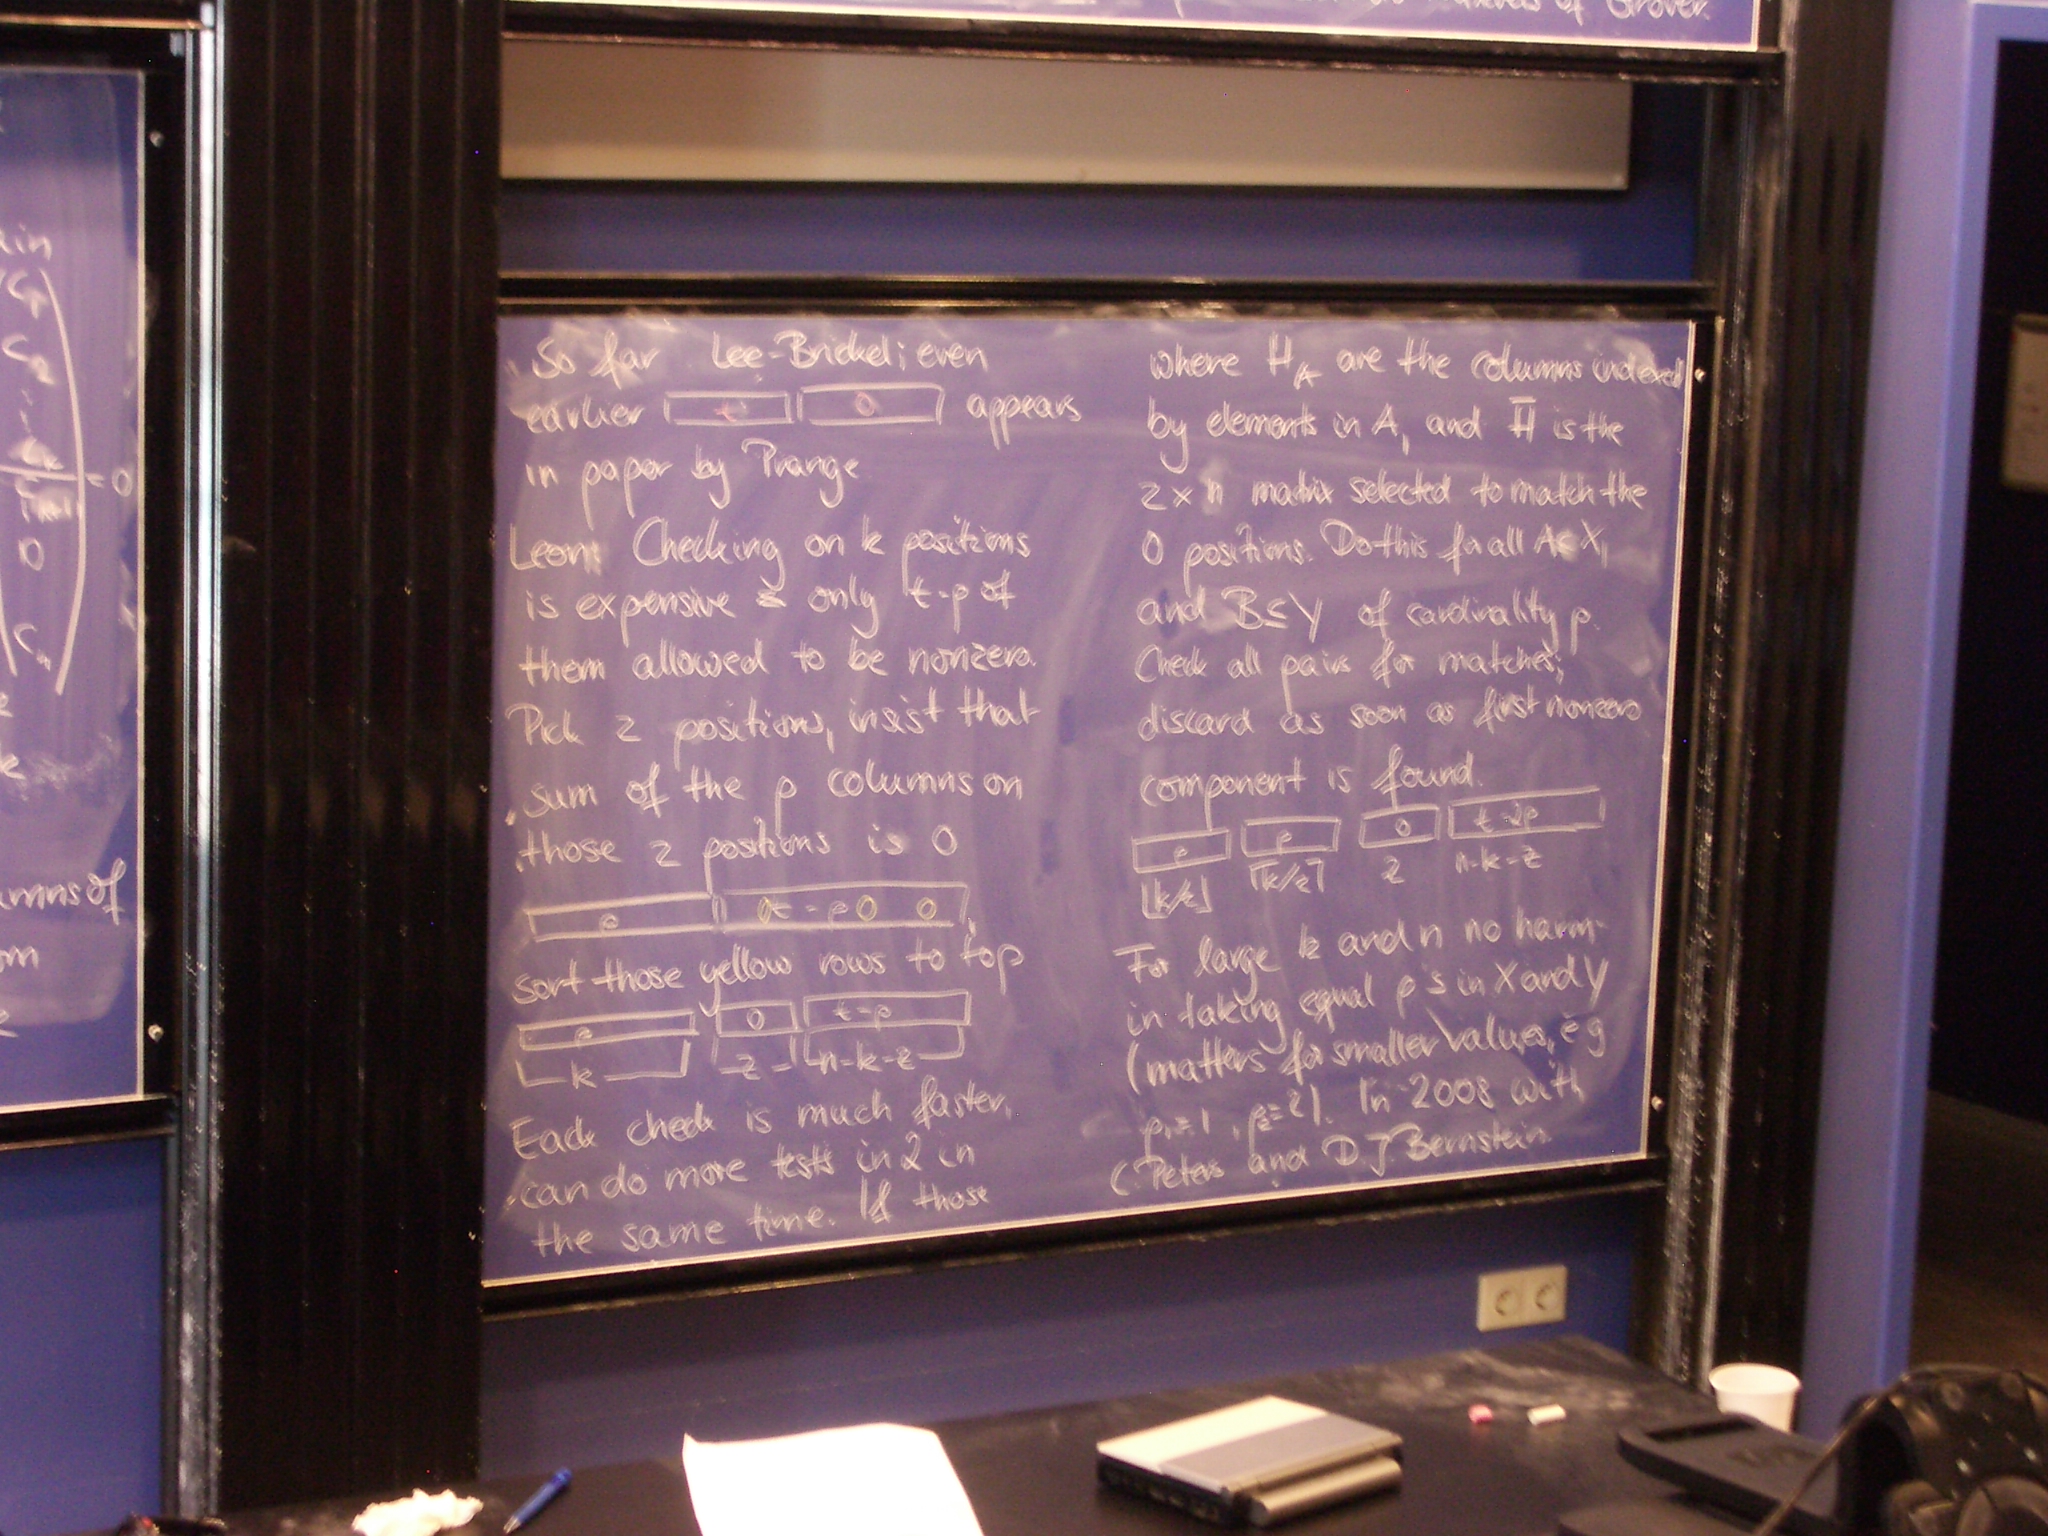 of Grover.
ain
C₁
C₂
= 0
0
Cₙ
umns of
om
So far Lee-Brickel; even
earlier t 0 appears
in paper by Prange
Leon: Checking on k positions
is expensive & only t-p of
them allowed to be nonzero.
Pick z positions, insist that
sum of the p columns on
those z positions is 0
p 0 t-p 0 0
sort those yellow rows to top
p 0 t-p
k z n-k-z
Each check is much faster,
can do more tests in 2 in
the same time. If those
where H_A are the columns indexed
by elements in A, and H̅ is the
z × n matrix selected to match the
0 positions. Do this for all A⊆X,
and B⊆Y of cardinality p.
Check all pairs for matches;
discard as soon as first nonzero
component is found.
p p 0 t-2p
⌊k/2⌋ ⌈k/2⌉ z n-k-z
For large k and n no harm
in taking equal p's in X and Y
(matters for smaller values, eg
p₁=1, p₂=2). In 2008 with
C. Peters and D.J. Bernstein